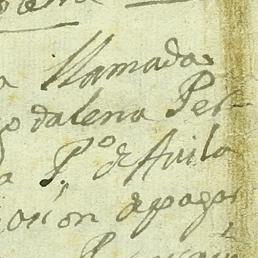 a llamada
dalena Per-
a P.º de Avila
ción de pagar